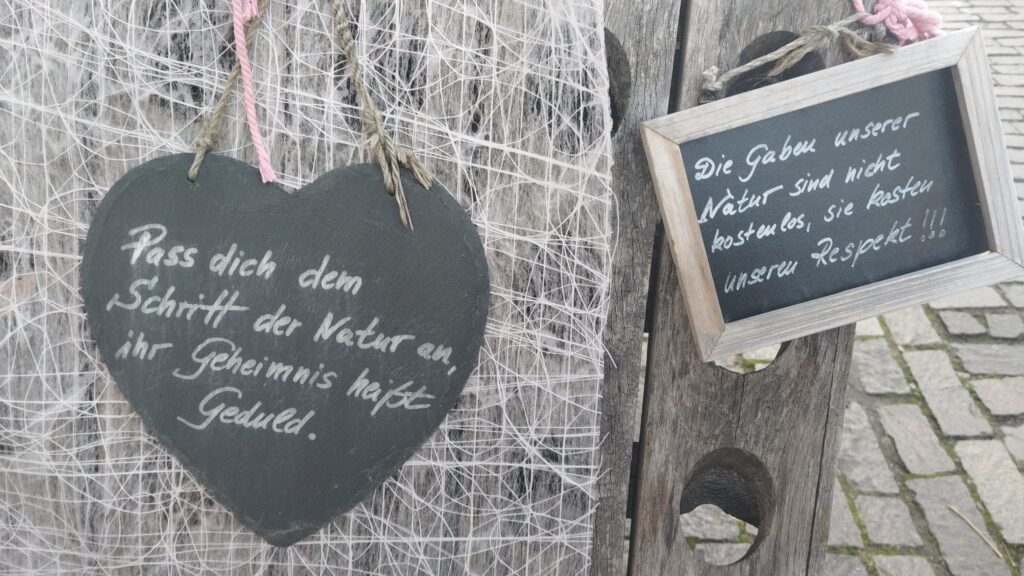 Pass dich dem
Schritt der Natur an,
ihr Geheimnis heißt
Geduld.
Die Gaben unserer
Natur sind nicht
kostenlos, sie kosten
unseren Respekt!!!